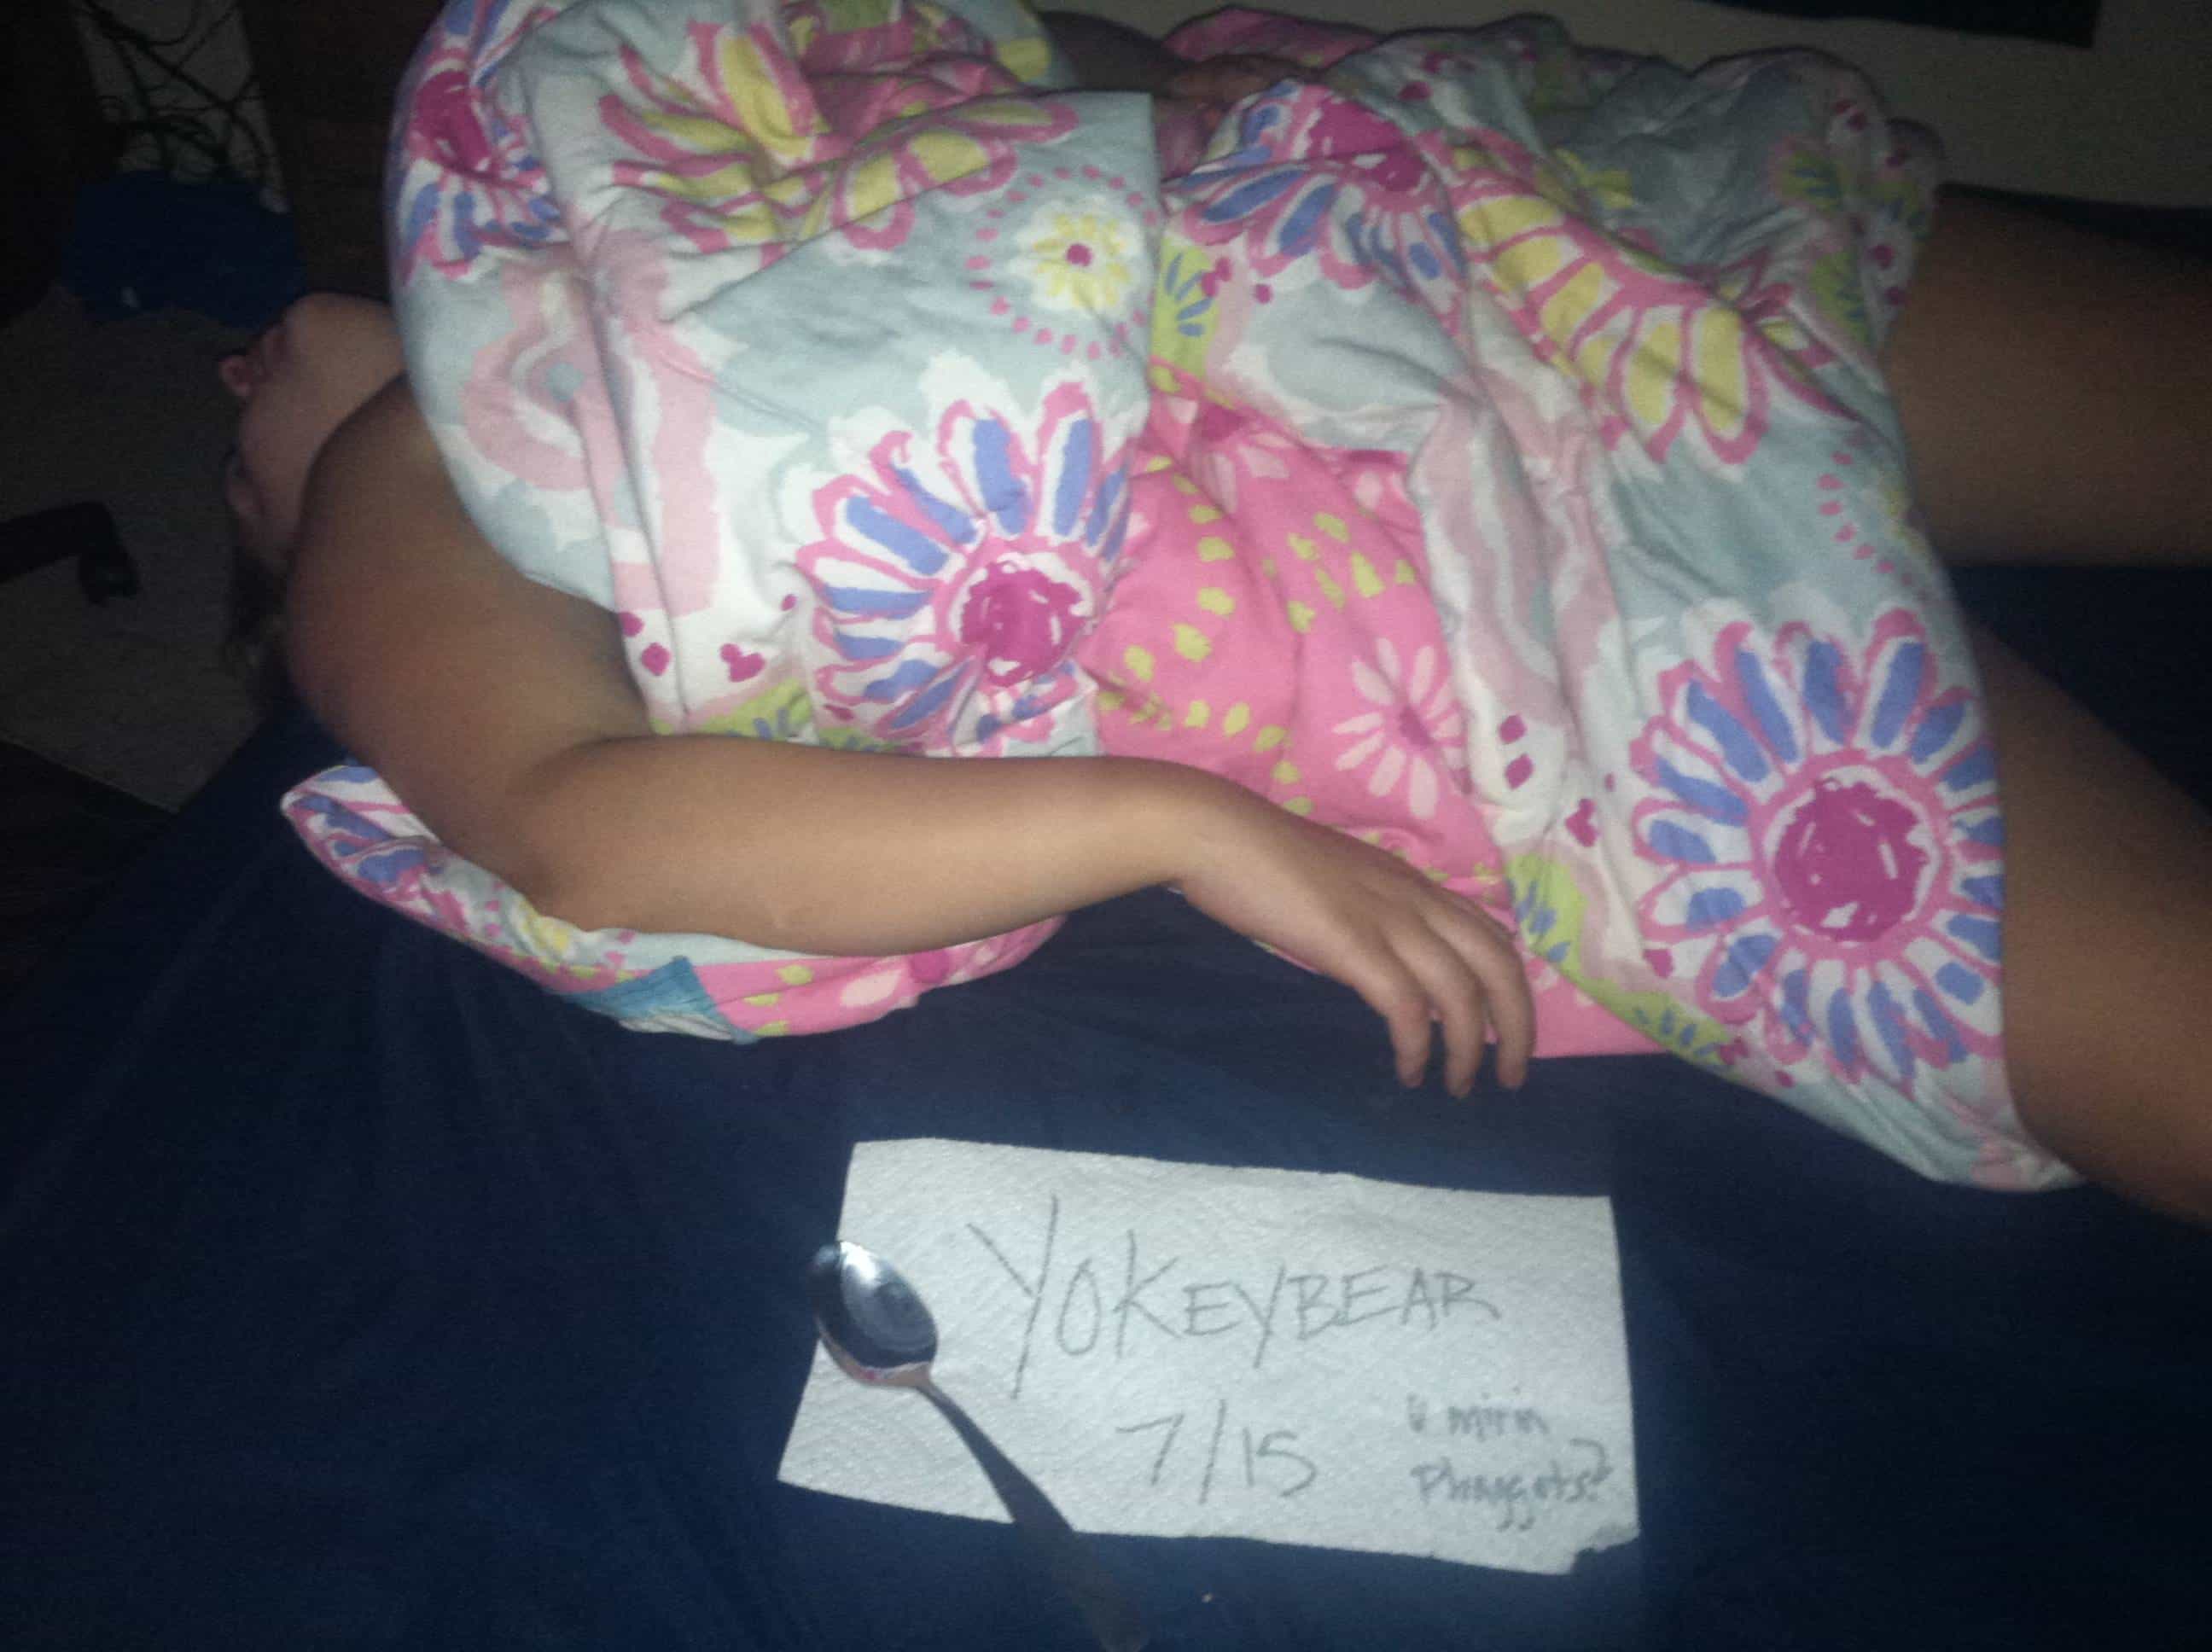 YOKEYBEAR
7/15
U mirin
Phaggots?